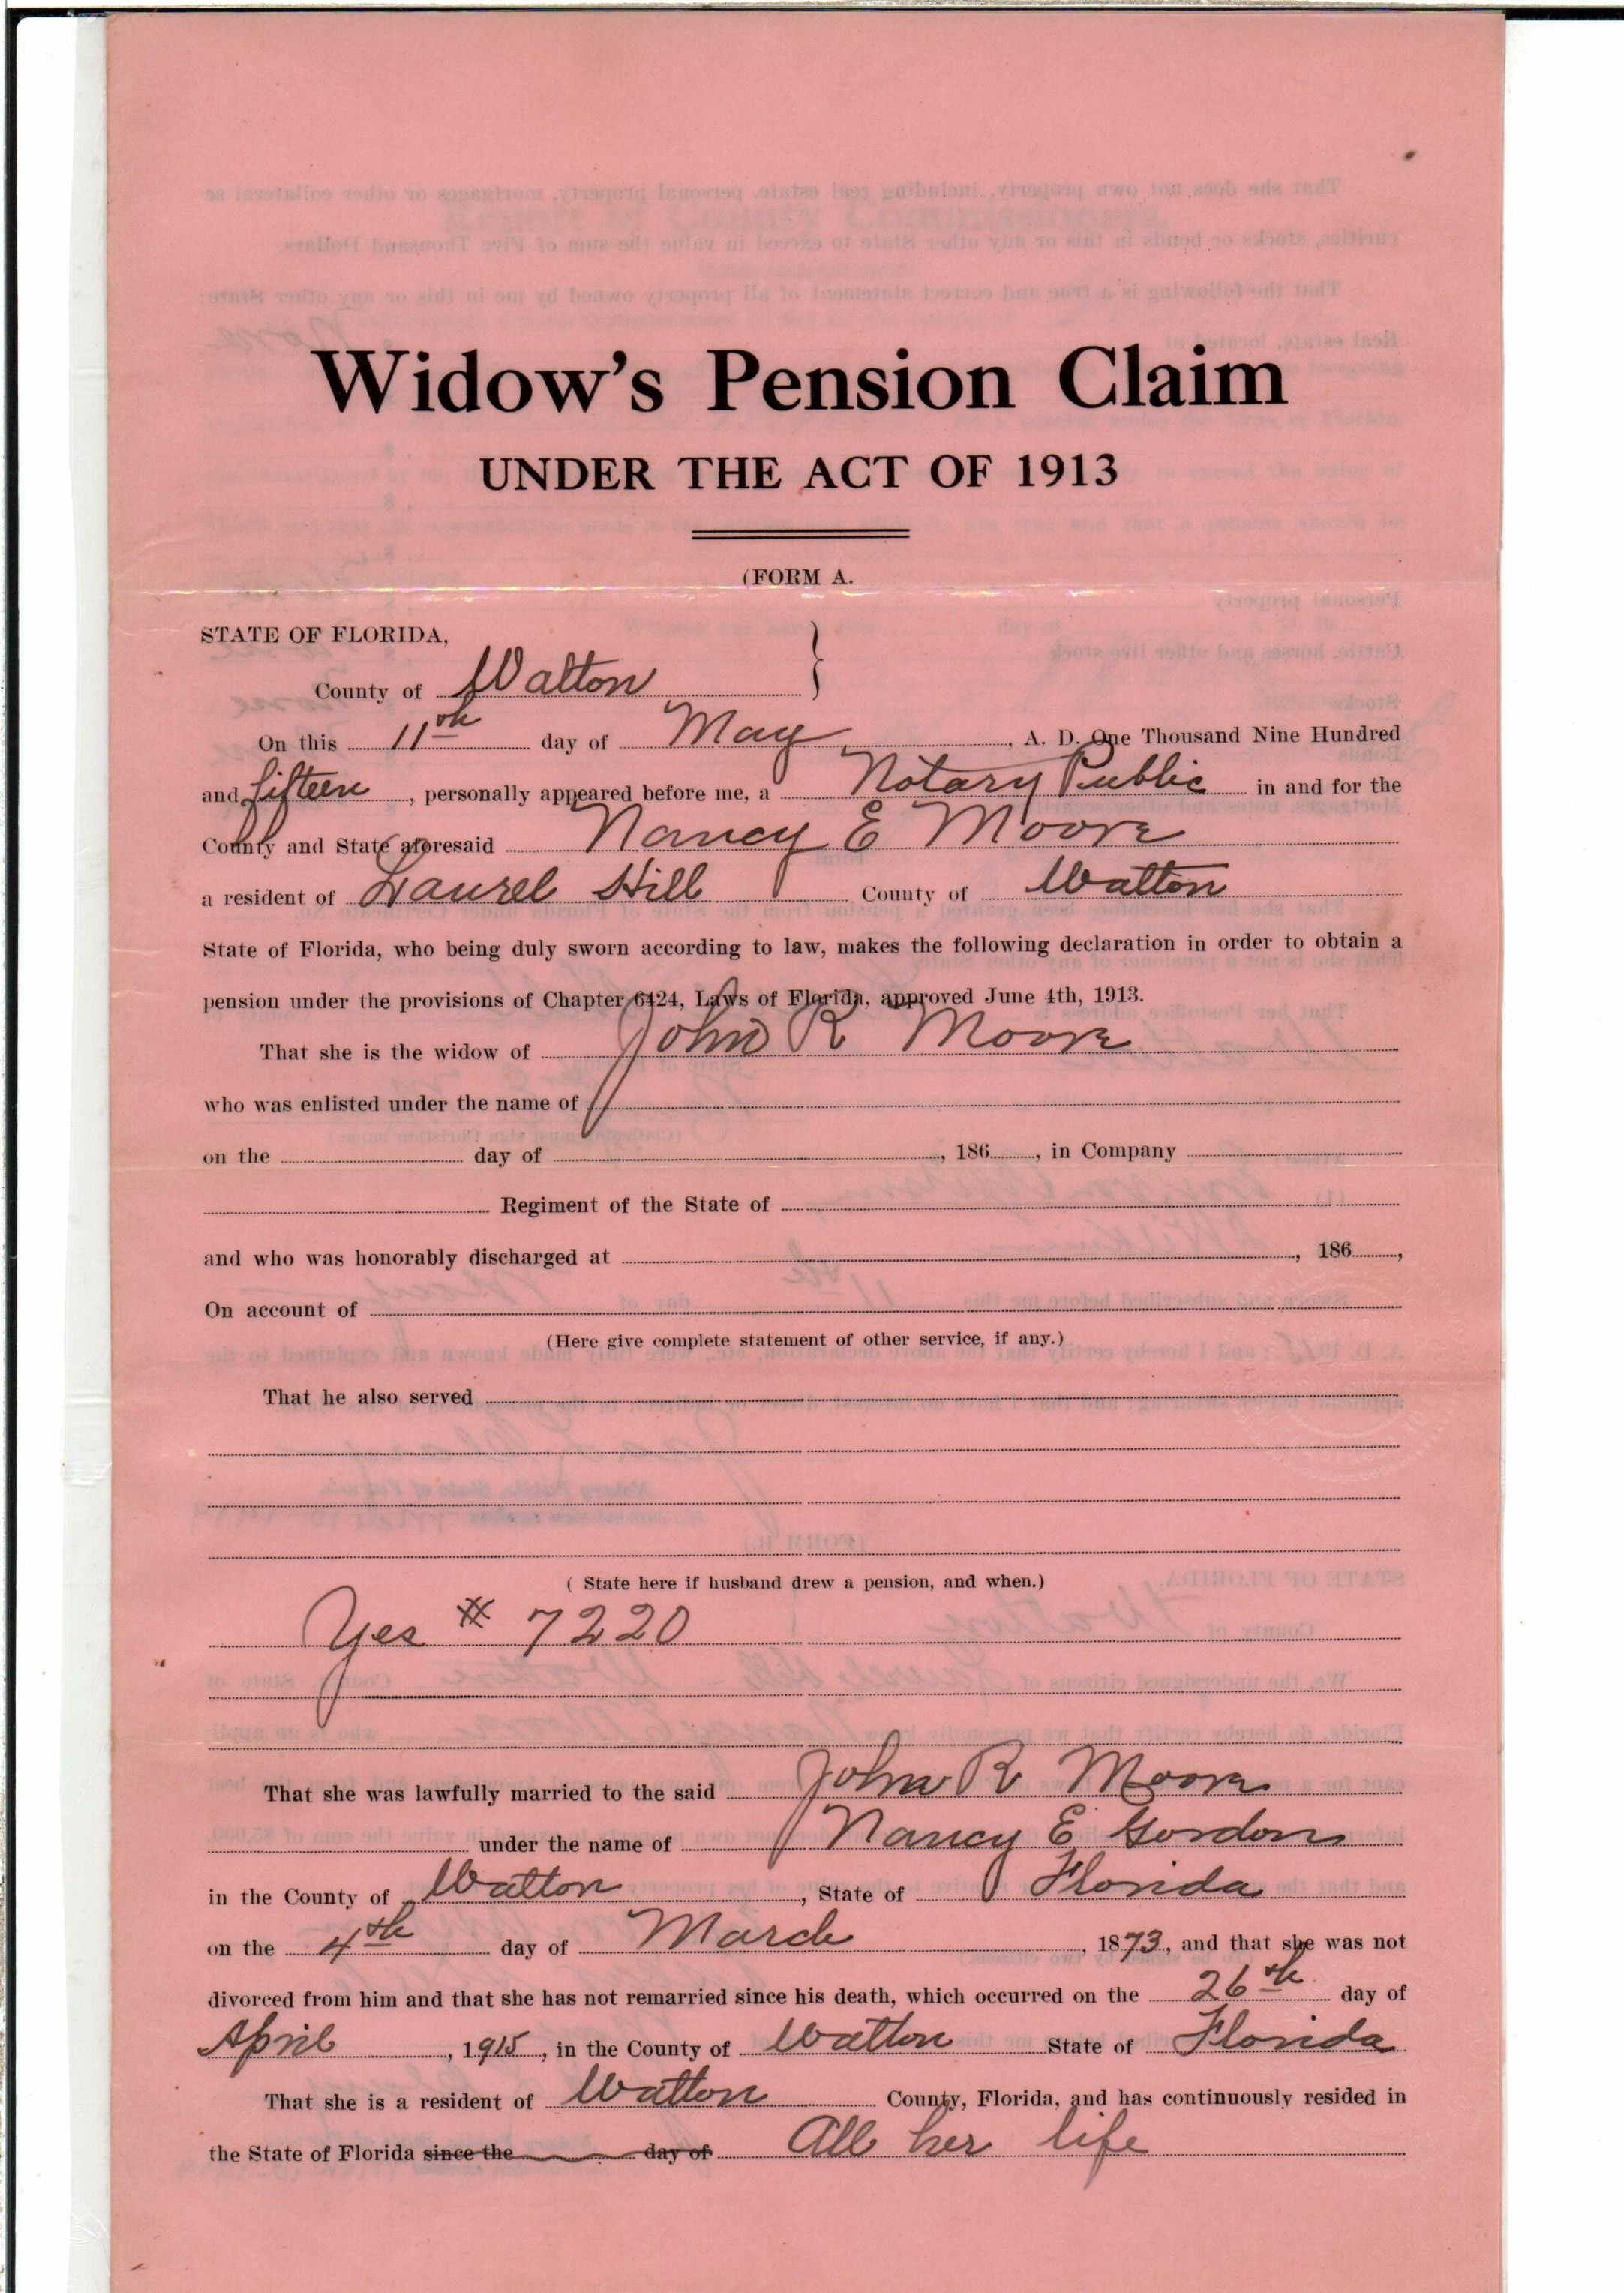 Widow's Pension Claim
UNDER THE ACT OF 1913
(FORM A.
STATE OF FLORIDA,
County of Walton }
On this 11th day of May, A. D. One Thousand Nine Hundred
and fifteen, personally appeared before me, a Notary Public in and for the
County and State aforesaid Nancy E Moore
a resident of Laurel Hill County of Walton
State of Florida, who being duly sworn according to law, makes the following declaration in order to obtain a
pension under the provisions of Chapter 6424, Laws of Florida, approved June 4th, 1913.
That she is the widow of John R Moore
who was enlisted under the name of
on the day of , 186 , in Company
Regiment of the State of
and who was honorably discharged at , 186 ,
On account of
(Here give complete statement of other service, if any.)
That he also served
( State here if husband drew a pension, and when.)
Yes # 7220
That she was lawfully married to the said John R Moore
under the name of Nancy E Gordon
in the County of Walton, State of Florida
on the 4th day of March, 1873, and that she was not
divorced from him and that she has not remarried since his death, which occurred on the 26th day of
April, 1915, in the County of Walton State of Florida
That she is a resident of Walton County, Florida, and has continuously resided in
the State of Florida since the day of All her life